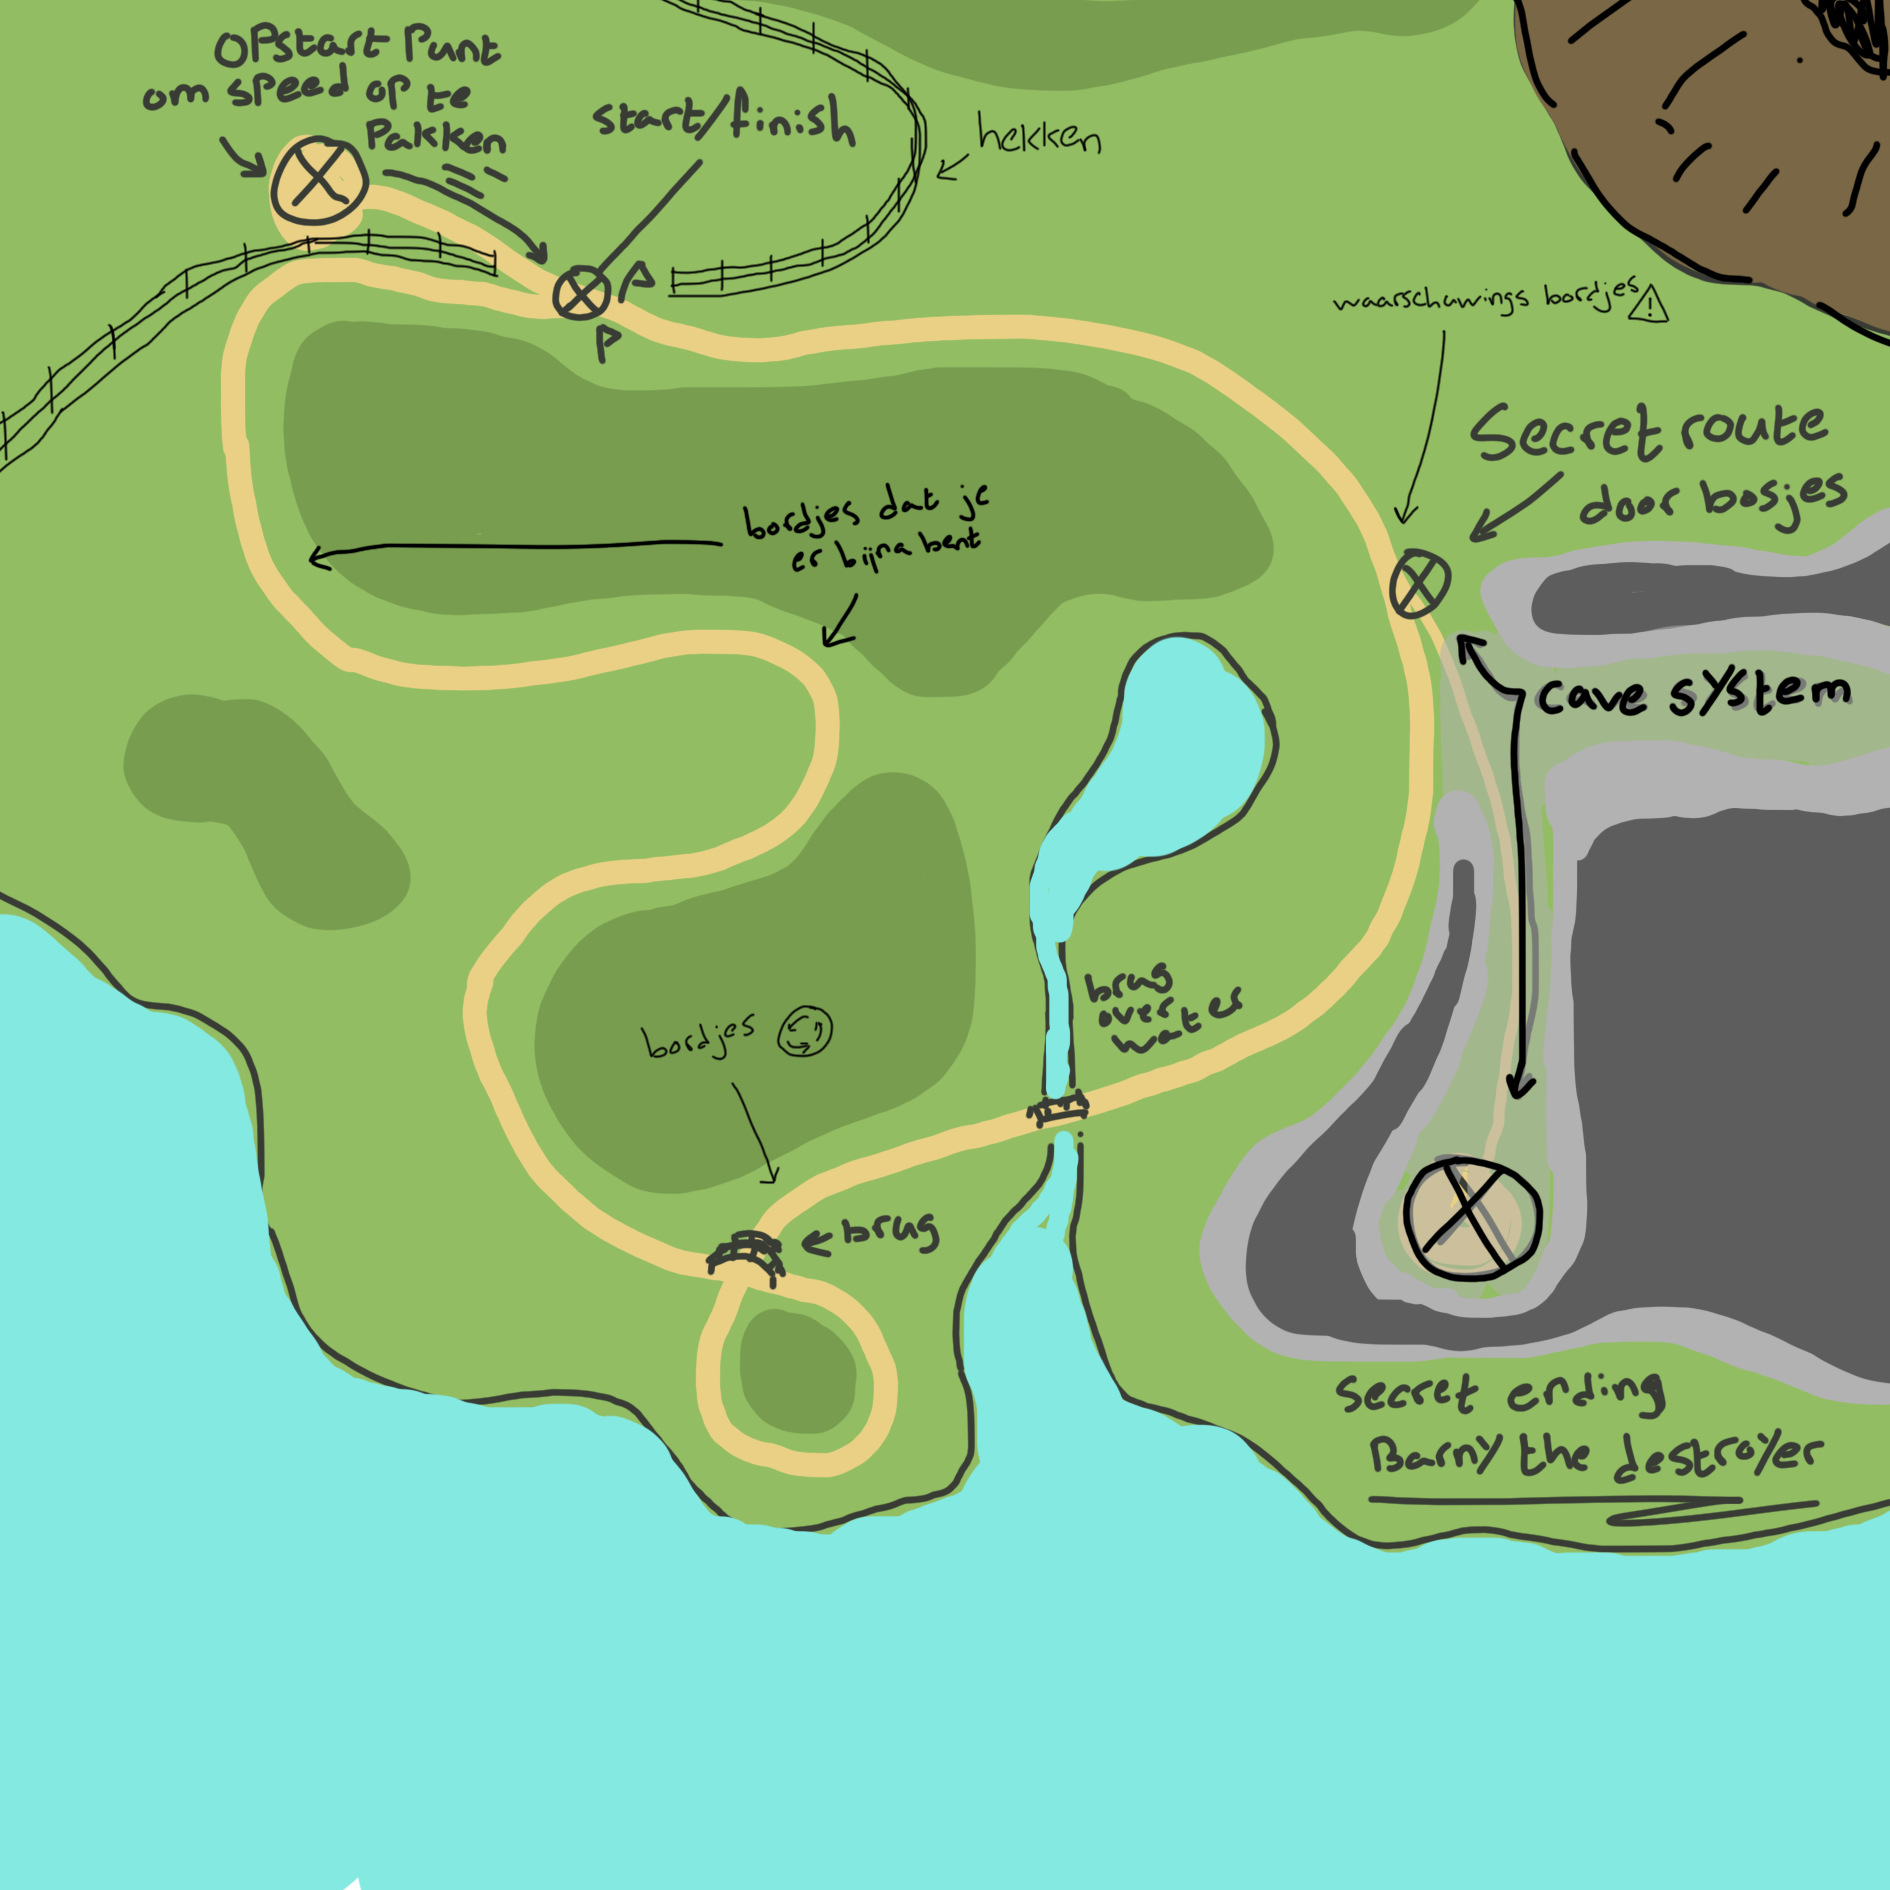 OPstart Punt
om speed op te
Pakken
start/finish
hekken
waarschuwings bordjes
!
Secret route
door bosjes
bordjes dat je
er bijna bent
cave system
brug
over
water
bordjes
brug
secret ending
Barny the destroyer